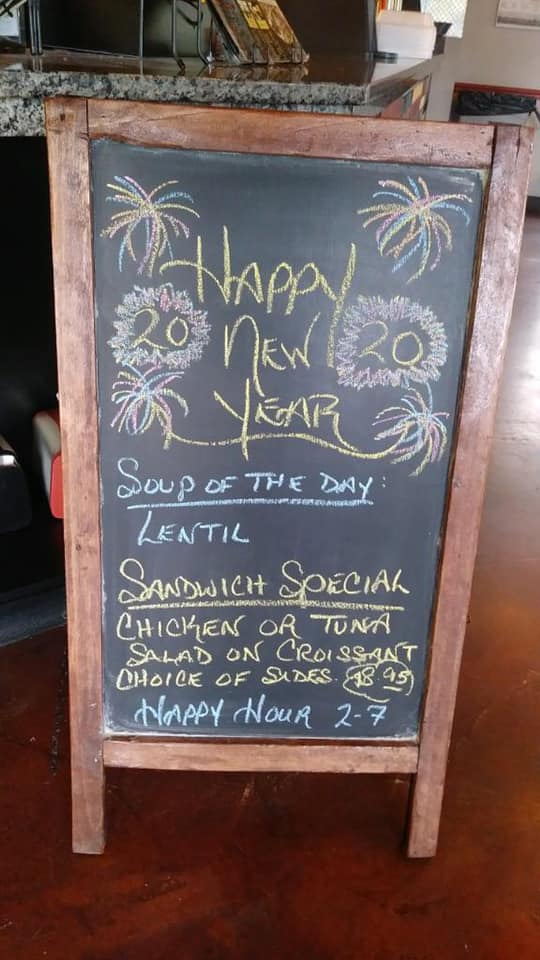 Happy
20 New 20
Year
Soup of the Day:
Lentil
Sandwich Special
Chicken or Tuna
Salad on Croissant
Choice of Sides. $8.95
Happy Hour 2-7